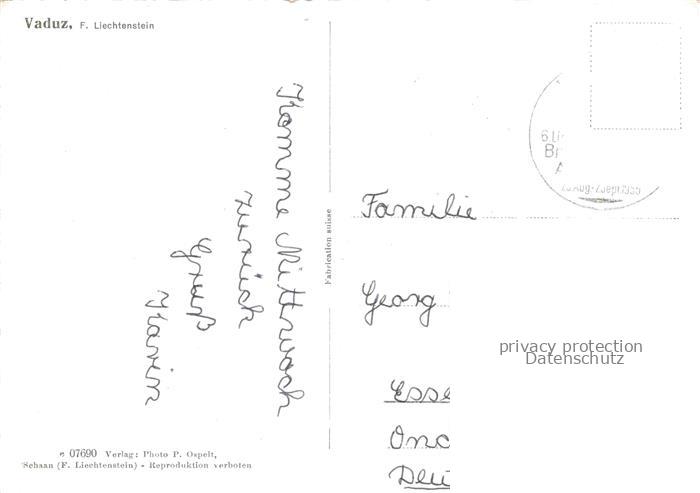 Vaduz, F. Liechtenstein
Komme Mittwoch
zurück
Gruß
Karin
Fabrication suisse
Familie
Georg
Esse
Onc
Deu
privacy protection
Datenschutz
07690 Verlag: Photo P. Ospelt,
Schaan (F. Liechtenstein) - Reproduktion verboten